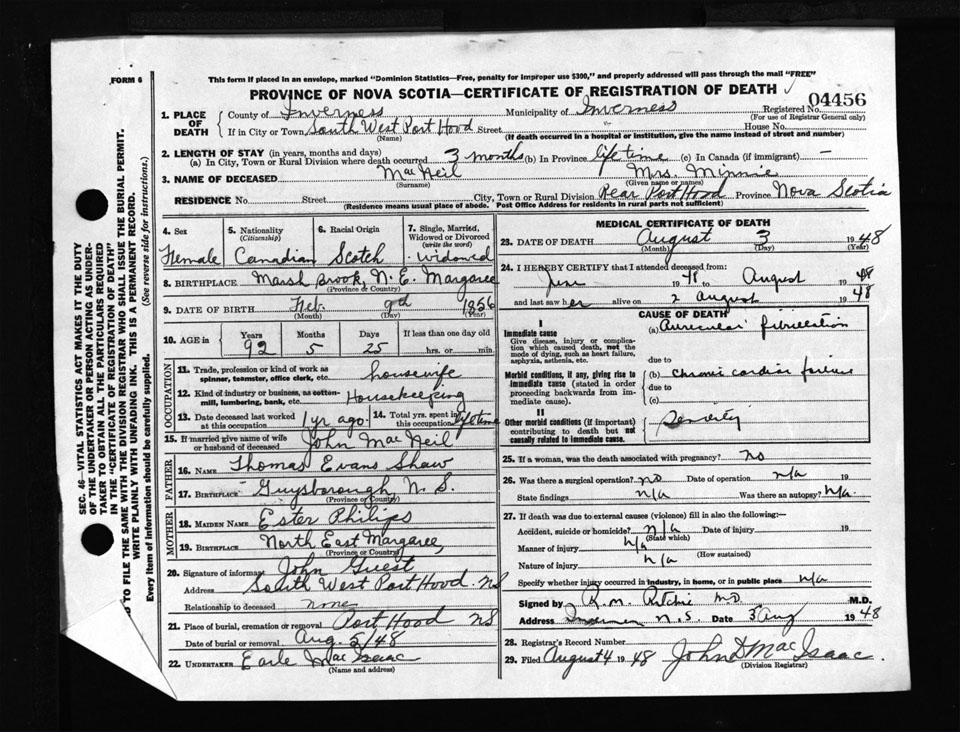 FORM 6
This form if placed in an envelope, marked "Dominion Statistics—Free, penalty for improper use $300," and properly addressed will pass through the mail "FREE"
PROVINCE OF NOVA SCOTIA—CERTIFICATE OF REGISTRATION OF DEATH
04456
1. PLACE OF DEATH
County of Inverness Municipality of Inverness Registered No.
(For use of Registrar General only)
If in City or Town South West Port Hood Street House No.
(Name) (If death occurred in a hospital or institution, give the name instead of street and number)
2. LENGTH OF STAY (in years, months and days)
(a) In City, Town or Rural Division where death occurred 3 months (b) In Province lifetime (c) In Canada (if immigrant) —
3. NAME OF DECEASED MacNeil Mrs. Minnie
(Surname) (Given name or names)
RESIDENCE No. Street City, Town or Rural Division Rear Port Hood Province Nova Scotia
(Residence means usual place of abode. Post Office Address for residents in rural parts not sufficient)
4. Sex
Female
5. Nationality
(Citizenship)
Canadian
6. Racial Origin
Scotch
7. Single, Married, Widowed or Divorced
(write the word)
widowed
8. BIRTHPLACE Marsh Brook, N. E. Margaree
(Province or Country)
9. DATE OF BIRTH Feb. 9th 1856
(Month) (Day) (Year)
10. AGE in
Years Months Days If less than one day old
92 5 25 hrs. or min.
OCCUPATION
11. Trade, profession or kind of work as spinner, teamster, office clerk, etc. housewife
12. Kind of industry or business, as cotton-mill, lumbering, bank, etc. Housekeeping
13. Date deceased last worked at this occupation 1 yr ago.
14. Total yrs. spent in this occupation lifetime
15. If married give name of wife or husband of deceased John MacNeil
FATHER
16. NAME Thomas Evans Shaw
17. BIRTHPLACE Guysborough N. S.
(Province or Country)
MOTHER
18. MAIDEN NAME Ester Philips
19. BIRTHPLACE North East Margaree,
(Province or Country)
20. Signature of informant John Guest
Address South West Port Hood. NS
Relationship to deceased none
21. Place of burial, cremation or removal Port Hood NS
Date of burial or removal Aug. 5/48
22. UNDERTAKER Earle MacIsaac
(Name and address)
MEDICAL CERTIFICATE OF DEATH
23. DATE OF DEATH August 3 1948
(Month) (Day) (Year)
24. I HEREBY CERTIFY that I attended deceased from:
June 1948 August 1948
and last saw her alive on 2 august 1948
CAUSE OF DEATH
I
Immediate cause
Give disease, injury or complication which caused death, not the mode of dying, such as heart failure, asphyxia, asthenia, etc.
(a) Auricular fibrillation
due to
Morbid conditions, if any, giving rise to immediate cause (stated in order proceeding backwards from immediate cause).
(b) chronic cardiac failure
due to
(c)
II
Other morbid conditions (if important) contributing to death but not causally related to immediate cause.
25. If a woman, was the death associated with pregnancy? No
26. Was there a surgical operation? no Date of operation n/a 19
State findings n/a Was there an autopsy? N/a.
27. If death was due to external causes (violence) fill in also the following:—
Accident, suicide or homicide? n/a Date of injury 19
(State which)
Manner of injury n/a
(How sustained)
Nature of injury n/a
Specify whether injury occurred in industry, in home, or in public place n/a
Signed by R. M. Ritchie MD M.D.
Address N.S. Date 3 Aug 1948
28. Registrar's Record Number
29. Filed August 4 1948 John D MacIsaac.
(Division Registrar)
SEC. 46—VITAL STATISTICS ACT MAKES IT THE DUTY
OF THE UNDERTAKER OR PERSON ACTING AS UNDER-
TAKER TO OBTAIN ALL THE PARTICULARS REQUIRED
IN THE "CERTIFICATE OF REGISTRATION OF DEATH"
TO FILE THE SAME WITH THE DIVISION REGISTRAR WHO SHALL ISSUE THE BURIAL PERMIT.
WRITE PLAINLY WITH UNFADING INK. THIS IS A PERMANENT RECORD.
Every item of information should be carefully supplied. (See reverse side for instructions.)